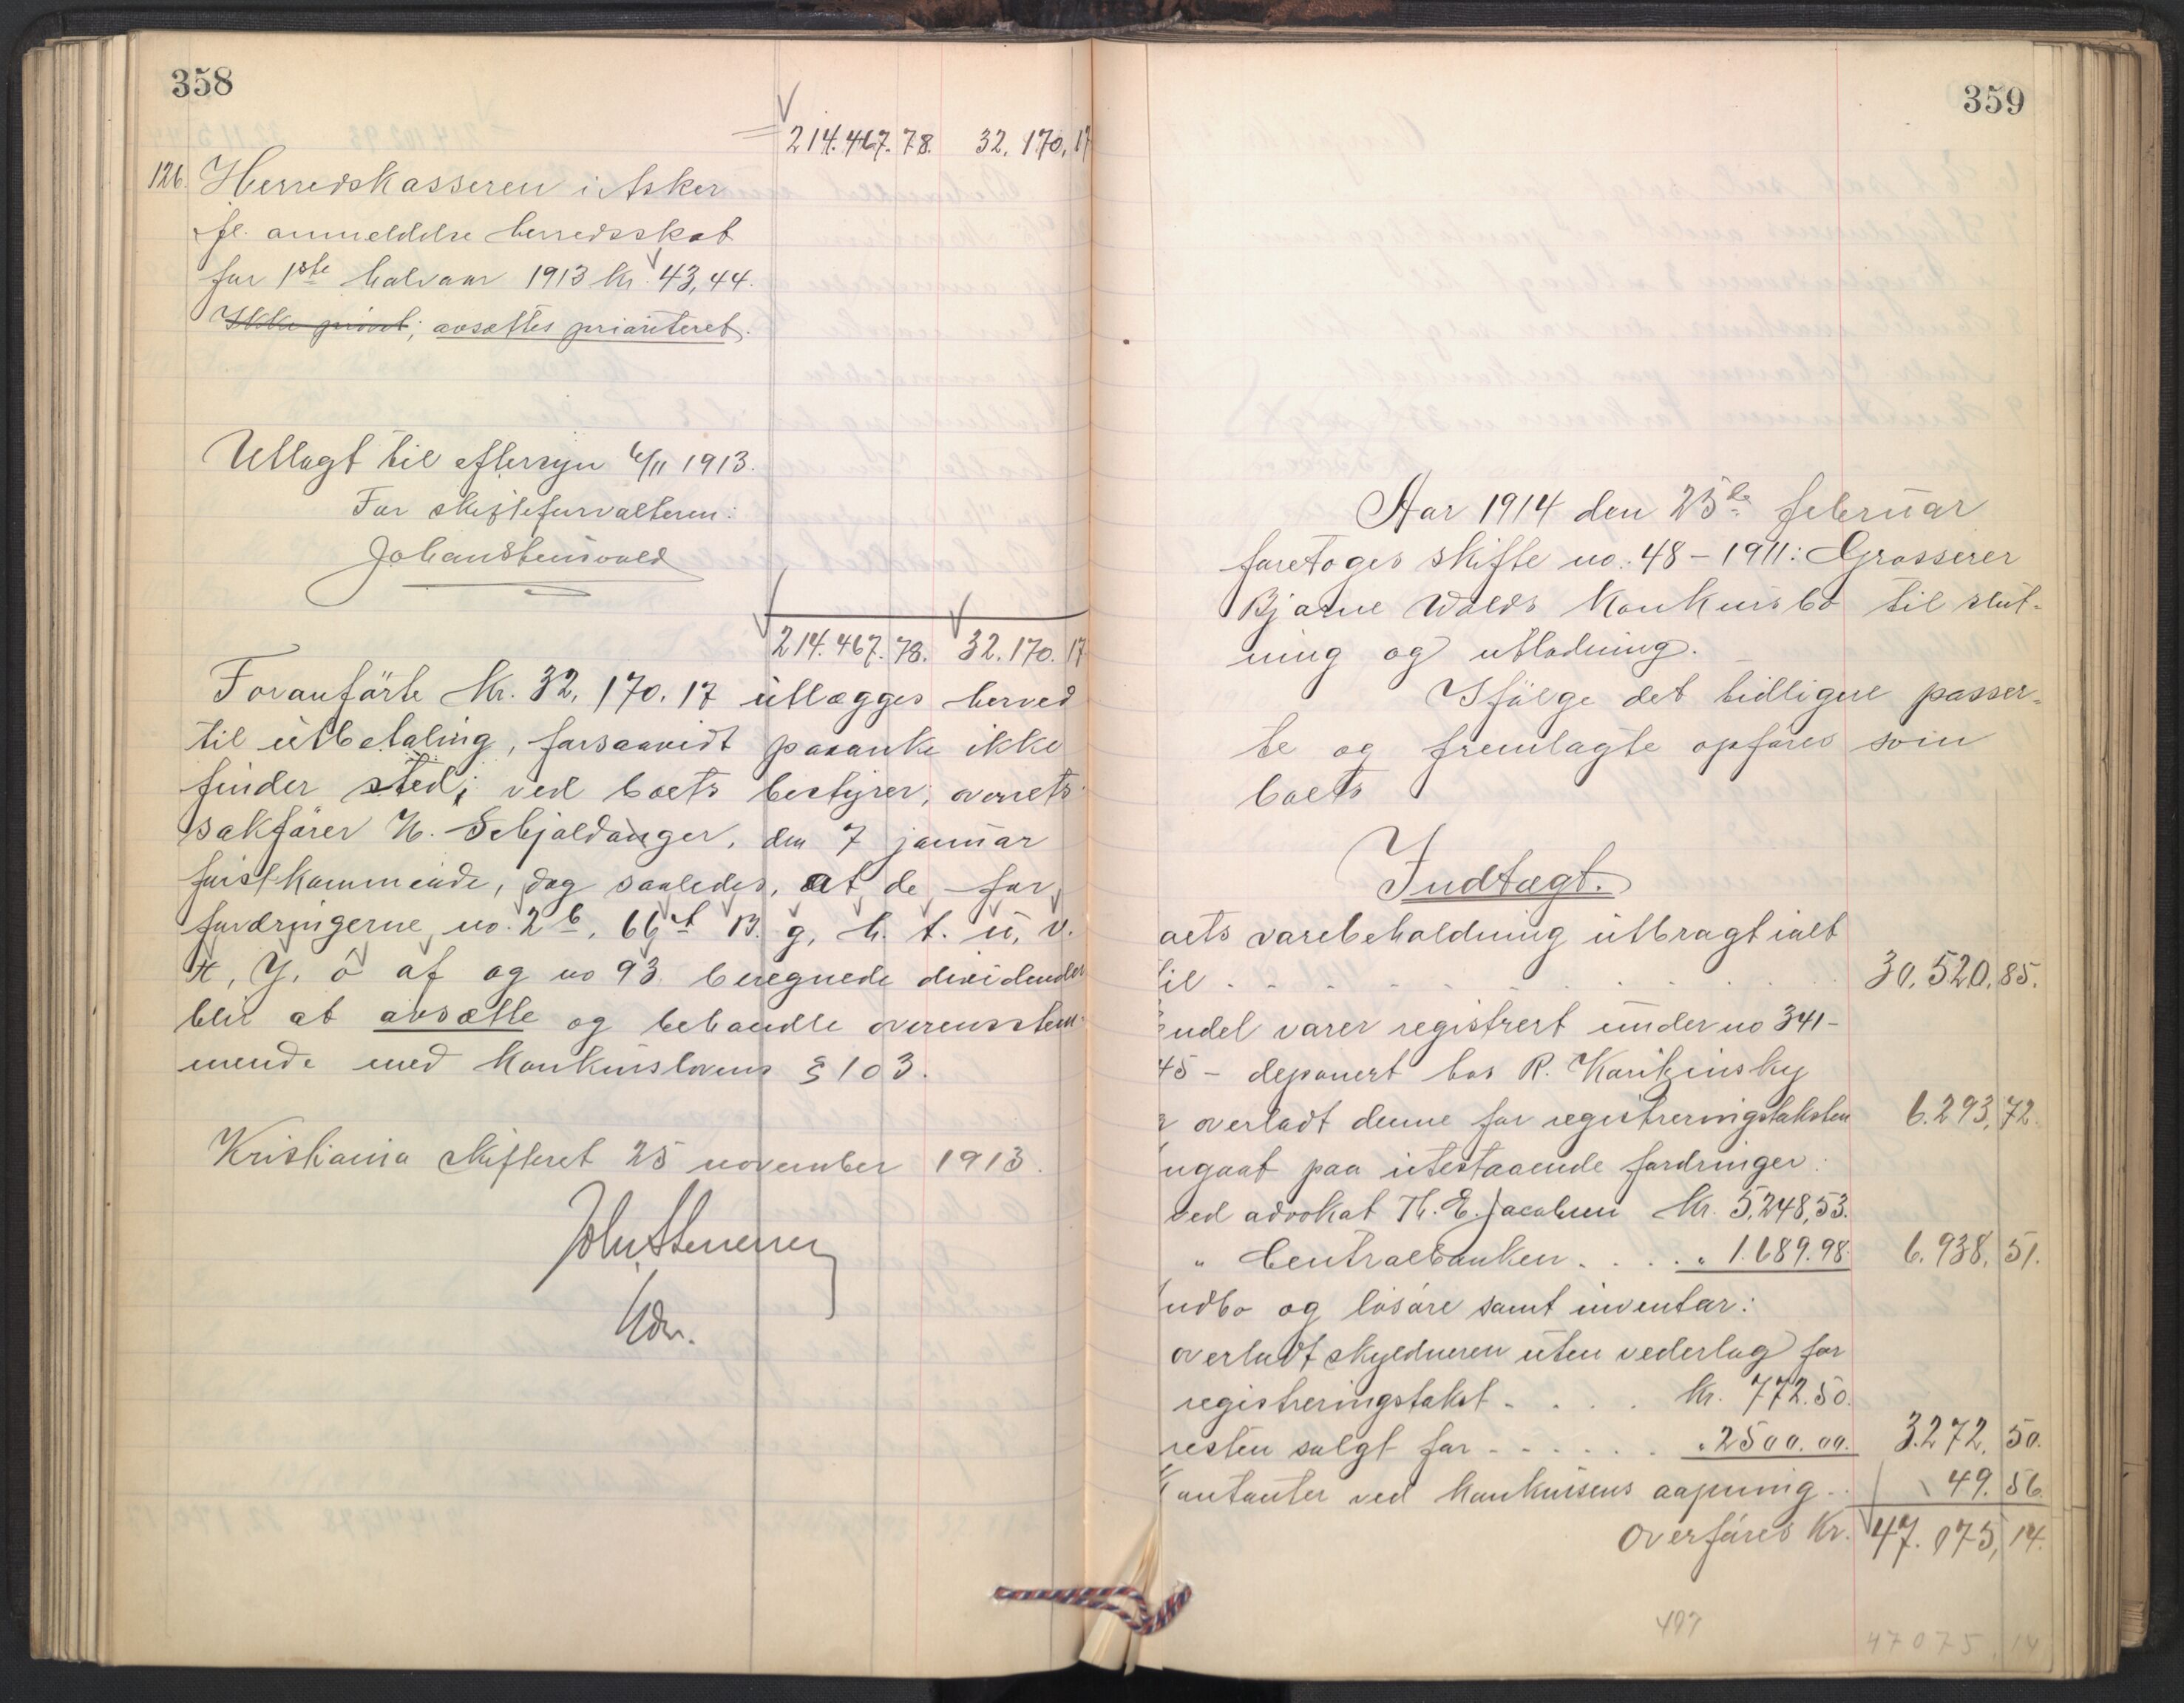 358
214.467.78. 32.170,17
126. Herredskasseren i Asker
fl. anmeldelse herredsskat
for 1ste halvaar 1913 kr. 43,44.
Ikke prøvet; avsættes prioriteret.
Utlagt til eftersyn 6/11 1913.
For skifteforvalteren:
Johan Steinvold
214.467.78. 32.170.17
Foranførte kr. 32.170.17 utlægges herved
til utbetaling, forsaavidt paaanke ikke
finder sted, ved boets bestyrer, overrets
sakfører N. Schjoldager, den 7 januar
førstkommende, dog saaledes, at de for
fordringerne no. 2 b, 66 t B. g, h. t. u, v.
x, y, ø af og no 93 beregnede dividender
blir at avsætte og behandle overensstem-
mende med konkurslovens § 103.
Kristiania skifteret 25 november 1913.
359
Aar 1914 den 25de februar
foretoges skifte no. 48 – 1911: Grosserer
Bjarne Wolds konkursbo til slut-
ning og utlodning.
Ifølge det tidligere passer-
te og fremlagte opføres som
boets
Indtægt.
oets varebeholdning utbragt ialt
til . . . . . . . . . . 30.520,85.
endel varer registrert under no 341-
45 – deponert hos R.
overladt denne for registreringstaksten 6.293,72.
ngaat paa utestaaende fordringer:
ved advokat Th. E. Jacobsen kr. 5.248,53.
" Centralbanken . . . . " 1.689.98. 6.938,51.
ndbo og løsøre samt inventar:
overladt skyldneren uten vederlag for
registreringstakst . . . . kr. 772.50.
resten solgt for . . . . . . " 2500.00. 3.272,50.
Kontanter ved konkursens aapning . . 49.56.
Overføres kr. 47.075,14.
47075,14